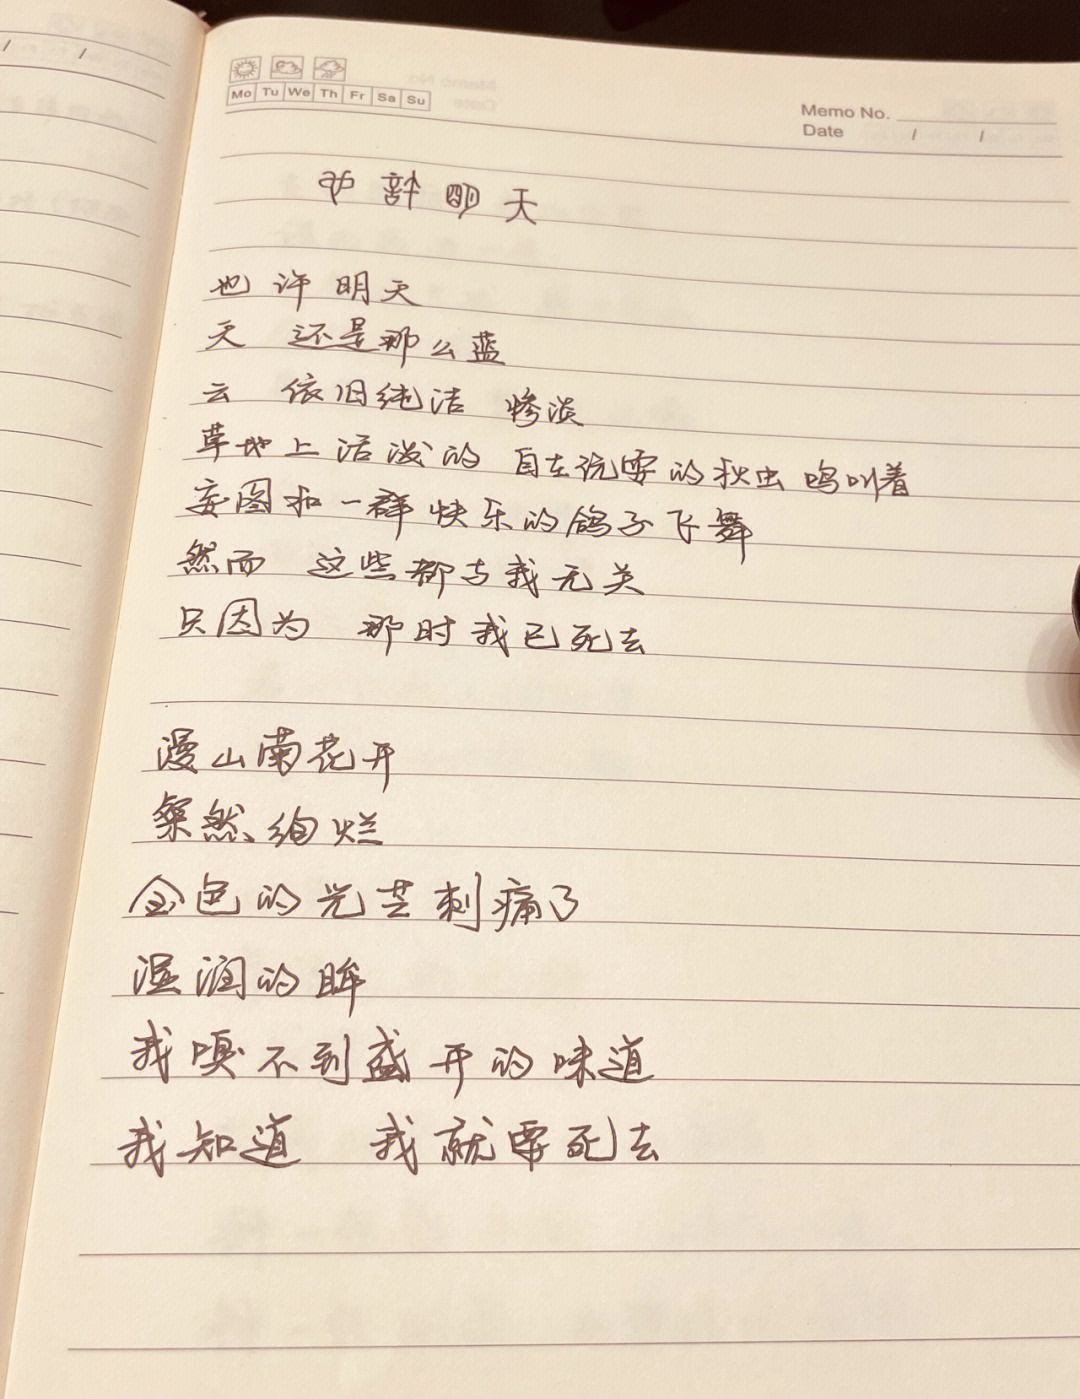 Mo Tu We Th Fr Sa Su
Memo No.
Date / /
也許明天
也许明天
天 还是那么蓝
云 依旧纯洁 惨淡
草地上活泼的 自在玩耍的秋虫鸣叫着
妄图和一群快乐的鸽子飞舞
然而 这些都与我无关
只因为 那时我已死去
漫山菊花开
粲然绚烂
金色的光芒刺痛了
湿润的眸
我嗅不到盛开的味道
我知道 我就要死去